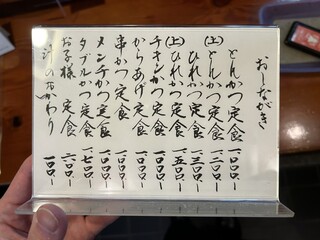 おしながき
とんかつ定食 一、〇〇〇、ー
(上)とんかつ定食 一、二〇〇、ー
ひれかつ定食 一、三〇〇、ー
(上)ひれかつ定食 一、五〇〇、ー
チキンかつ定食 一、〇〇〇、ー
からあげ定食 一、〇〇〇、ー
串かつ定食 一、〇〇〇、ー
メンチかつ定食 一、〇〇〇、ー
ダブルかつ定食 一、七〇〇、ー
お子様定食 六〇〇、ー
汁のおかわり 一〇〇、ー